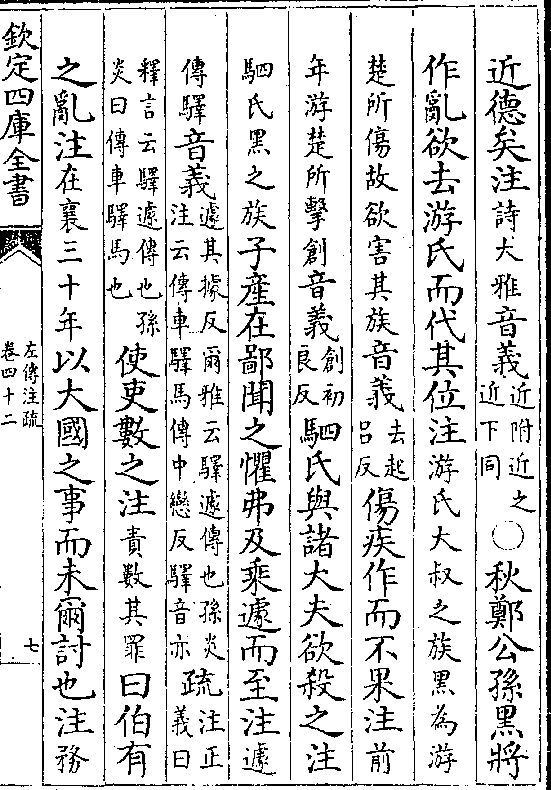 近德矣注詩大雅音義近附近之近下同○秋鄭公孫黑將
作亂欲去游氏而代其位注游氏大叔之族黑為游
楚所傷故欲害其族音義去起呂反傷疾作而不果注前
年游楚所擊創音義創初良反駟氏與諸大夫欲殺之注
駟氏黑之族子產在鄙聞之懼弗及乘遽而至注遽
傳驛音義遽其據反爾雅云驛遽傳也孫炎注云傳車驛馬傳中戀反驛音亦疏注正義曰
釋言云驛遽傳也孫炎曰傳車驛馬也使吏數之注責數其罪曰伯有
之亂注在襄三十年以大國之事而未爾討也注務
欽定四庫全書
左傳注疏
卷四十二
七